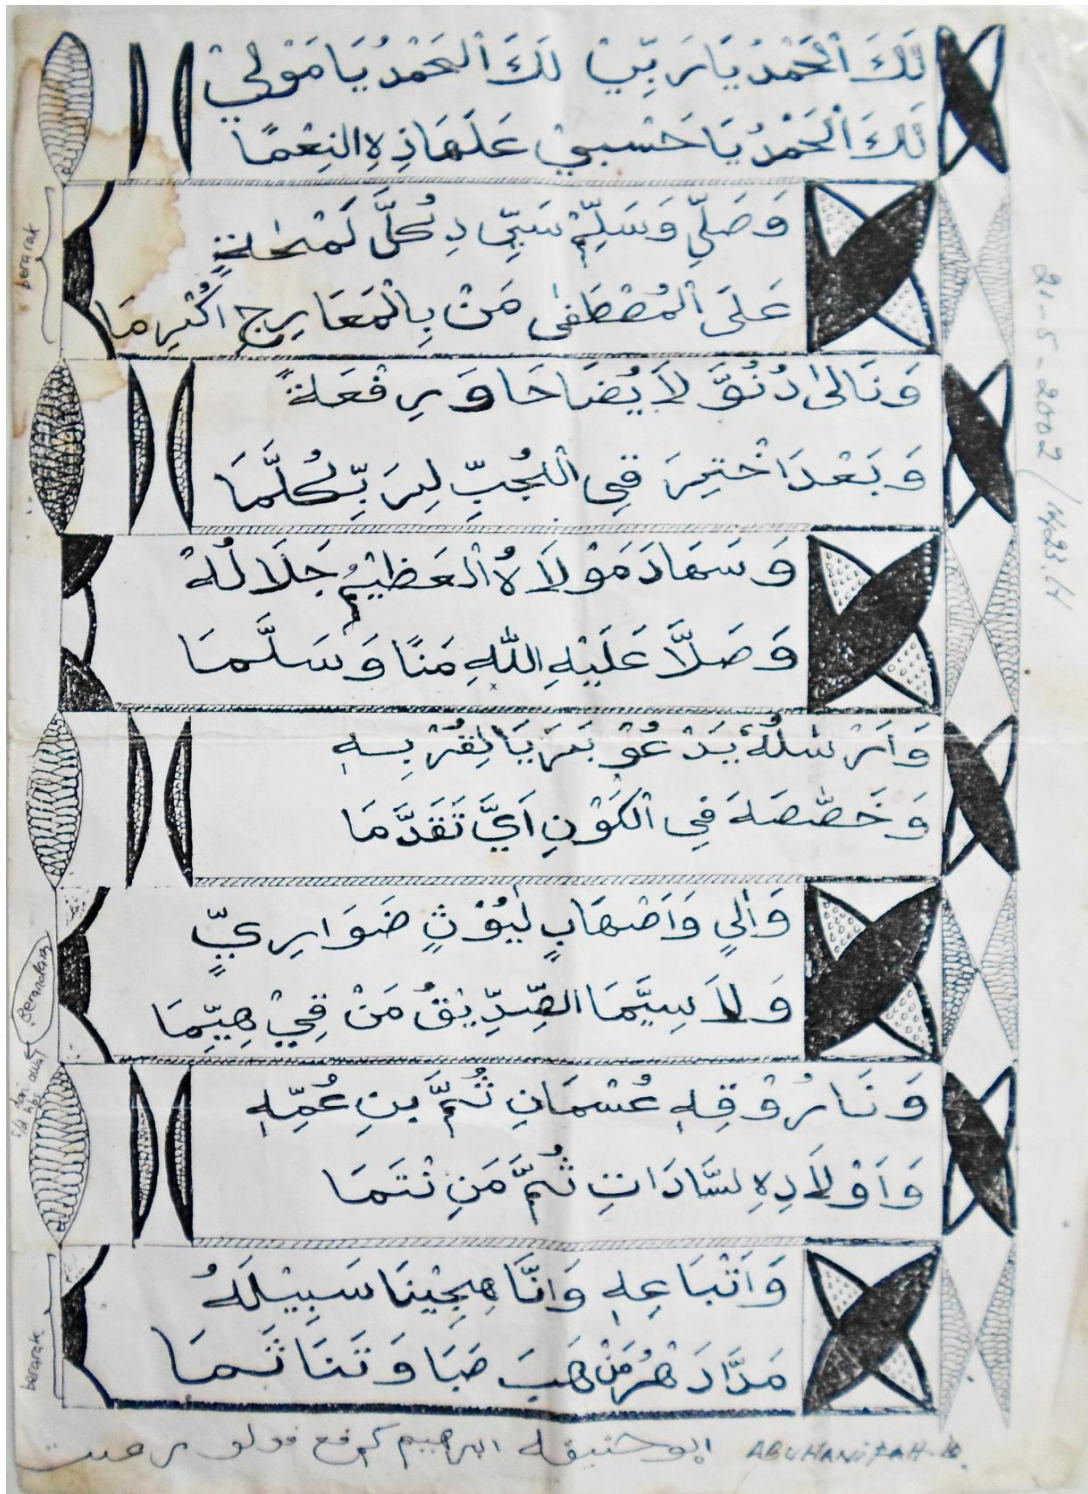 لَكَ ٱلْحَمْدُ يَا رَبِّيْ لَكَ ٱلْحَمْدُ يَا مَوْلِيْ
لَكَ ٱلْحَمْدُ يَا حَسْبِيْ عَلَهَاذِهِ النِعْمًا
وَصَلِّي وَسَلِّمْ سَيِّ دِ كُلَّ
عَلَى ٱلْمُصْطَفٰى مَنْ بِالْمَعَارِجِ اُكْرِمَا
وَنَالٰى دُنُوَّ لَا يُضَاحَا وَرِفْعَةً
وَبَعْدَ اخْتِرَ فِى ٱلْحُبِّ لِرَبِّ كُلَّمَا
وَسَمَادَ مَوْلَاهُ ٱلْعَظِيْمُ جَلَالُهْ
وَصَلَّا عَلَيْهِ اللّٰهِ مَنًا وَسَلَّمَا
وَاَرْسَلُهُ يَدْعُوْ بَرَيَا لِقُرْبِهِ
وَخَصَّصَهَ فِى ٱلكَوْنِ اَيَّ تَقَدَّمَا
وَاٰلٍي وَاَصْهَابٍ لُيُوْثٍ ضَوَارِيٍّ
وَلَا سِيَّمَا الصِّدِّيْقُ مَنْ فِيْ هِيِّمَا
وَفَارُوْقِهِ عُسْمَانِ ثُمَّ بنِ عُمِّهِ
وَاَوْلَادِهِ لسَّادَاتِ ثُمَّ مَنِ نْتَمَا
وَاَتْبَاعِهِ وَانَّا هِجِيْنَا سَبِيْلَهُ
مَدَّا دَهْرُ مَنْ هَبَ صَبَا وَتَنَاثَمَا
ابو حنيفه ابراهيم
ABUHANIFAH.
21-5-2002 / 1423.H
berarak
Berandam
berarak